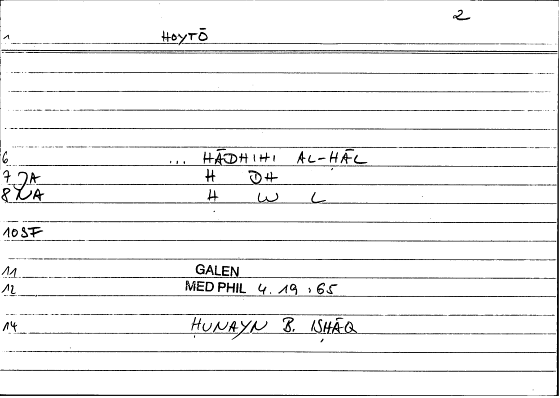 2
1 HOYTŌ
6 ... HĀDHIHI AL-ḤĀL
7 JA H DH
8 NA H W L
10 SF
11 GALEN
12 MED PHIL 4. 19 , 65
14 ḤUNAYN B. ISḤĀQ